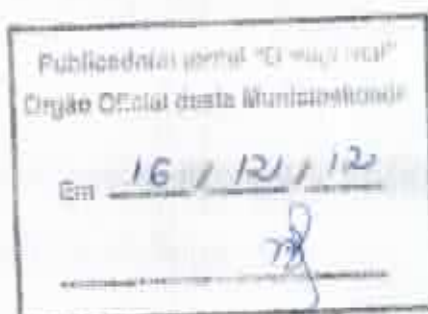 Publicado no jornal "O
Órgão Oficial desta Municipalidade
Em 16 / 12 / 12